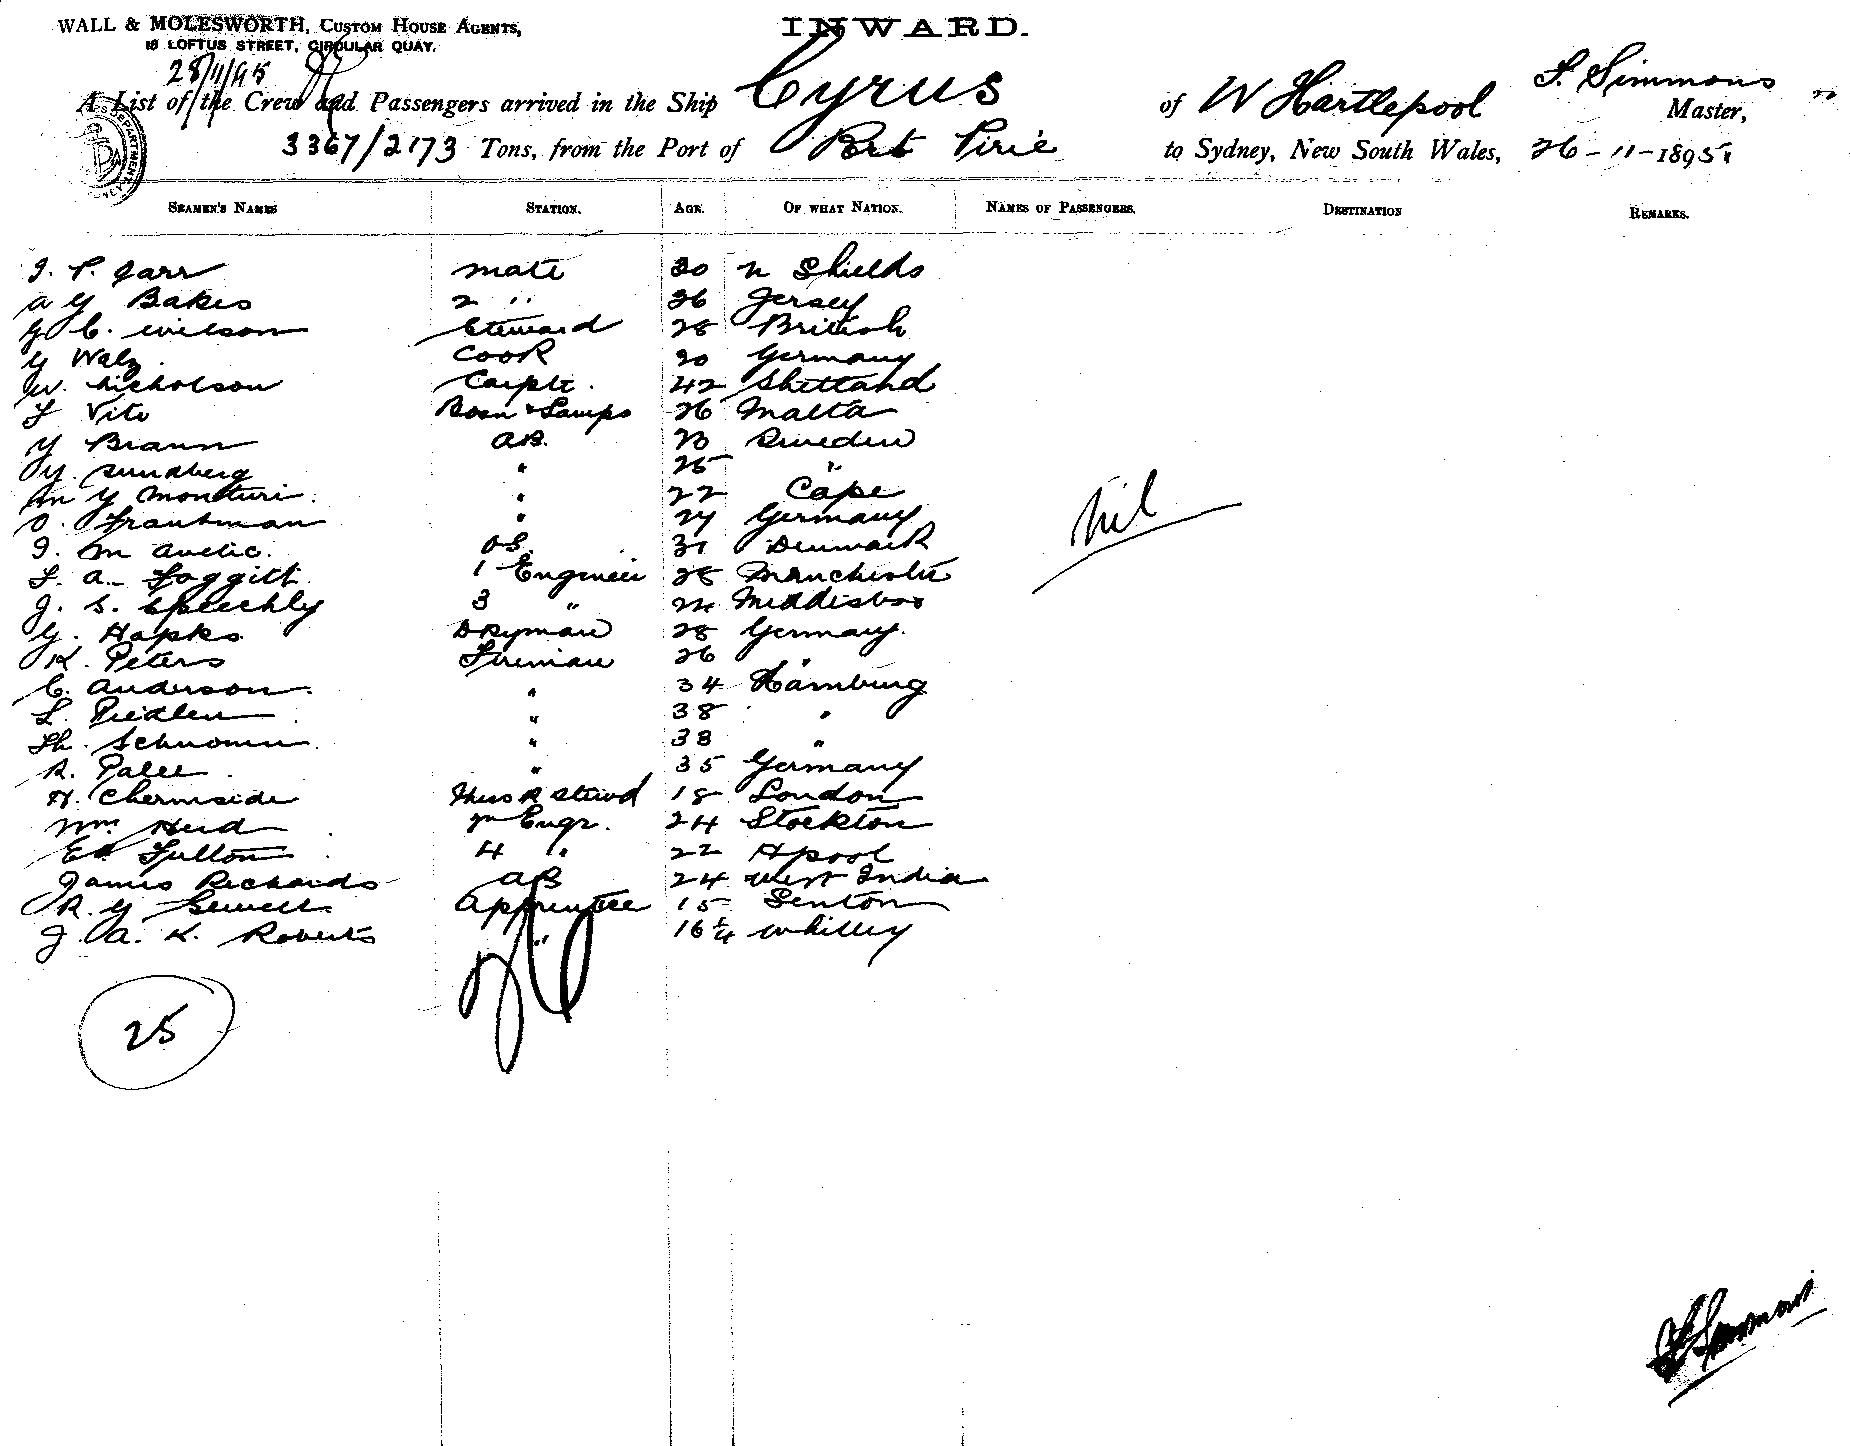 WALL & MOLESWORTH, CUSTOM HOUSE AGENTS,
18 LOFTUS STREET, CIRCULAR QUAY.
INWARD.
28/11/95
A List of the Crew and Passengers arrived in the Ship Cyrus of W Hartlepool F. Simmons Master,
3367/2173 Tons, from the Port of Port Pirie to Sydney, New South Wales, 26-11-1895
SEAMEN'S NAMES STATION. AGE. OF WHAT NATION. NAMES OF PASSENGERS. DESTINATION REMARKS.
mate 30 N Shields
Bakes 2 " 26 Jersey
C. Wilson Steward 28 British
Walz Cook 20 Germany
W. Nicholson Carptr. 42 Shettand
Vito Bosn & Lamps 26 Malta
Braun A.B. 23 Sweden
Sundberg " 25 "
" 22 Cape
O. Trautman " 24 Germany
O.S. 31 Denmark
Foggitt 1 Engineer 28 Manchester
J. S. Speechly 3 " 24 Middisboro
Hapks Dkyman 28 Germany.
K. Peters Fireman 26 "
C. Anderson " 34 Hamburg
" 38 "
" 38 "
" 35 Germany
H. Chermside Mess R Stewd 18 London
Wm Engr. 24 Stockton
Ed Fulton 4 " 22 Hpool
James Richards AB 24 West India
Apprentice 15
J. A. K. Roberts " 16 1/4 Whitley
nil
25
F Simmons